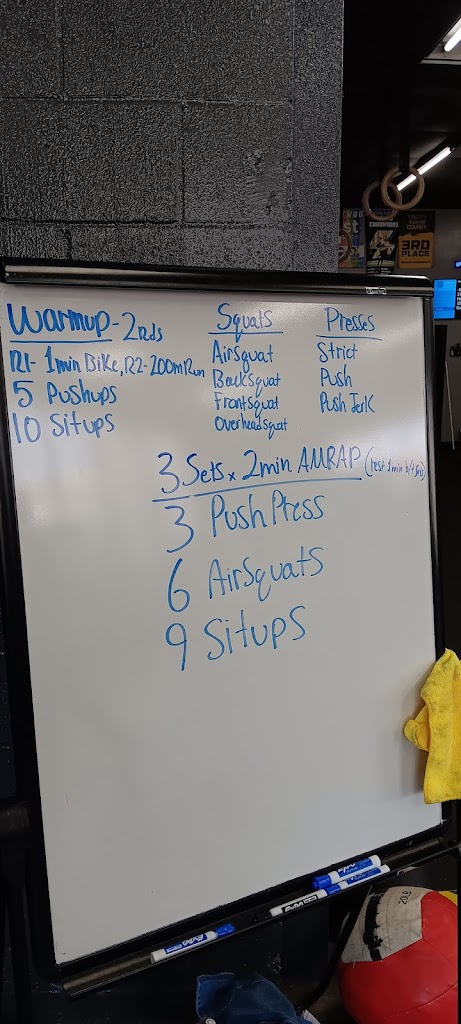 Warmup - 2Rds
R1- 1min Bike, R2-200m Run
5 Pushups
10 Situps
Squats
AirSquat
BackSquat
FrontSquat
OverheadSquat
Presses
Strict
Push
Push Jerk
3 Sets x 2min AMRAP (rest 1min b/t Sets)
3 Push Press
6 AirSquats
9 Situps
CHAMPIONS
COUNTY
3RD
PLACE
EXPO
EXPO
20LB